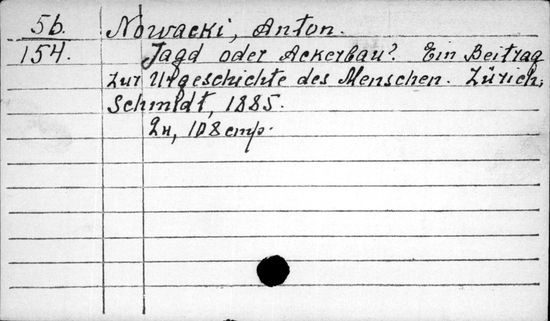 56.
154.
Nowacki, Anton.
Jagd oder Ackerbau? Ein Beitrag
zur Urgeschichte des Menschen. Zürich,
Schmidt, 1885.
108 cmp.